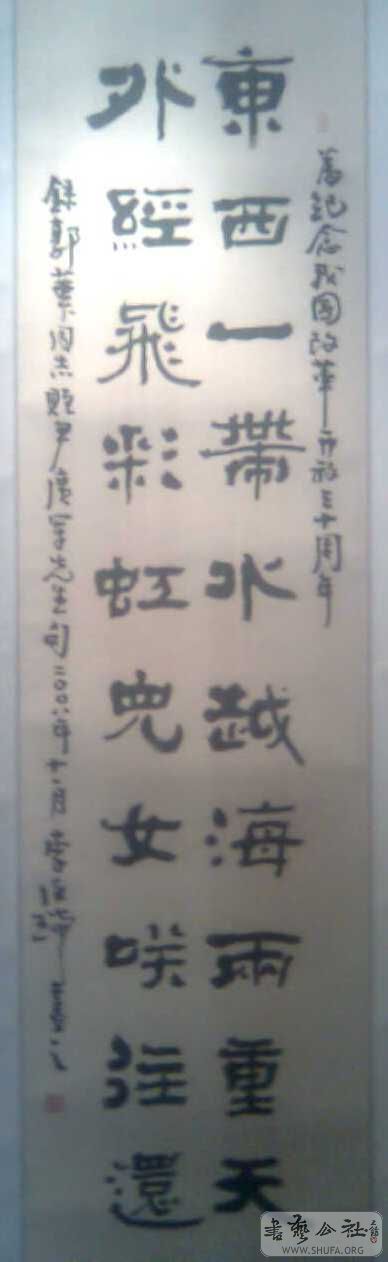 為紀念我国改革开放三十周年
東西一帶水越海兩重天
外經飛彩虹兒女咲往還
録郭 同志 尹 先生句二〇〇八年十一月 李 書
書藝公社
WWW.SHUFA.ORG